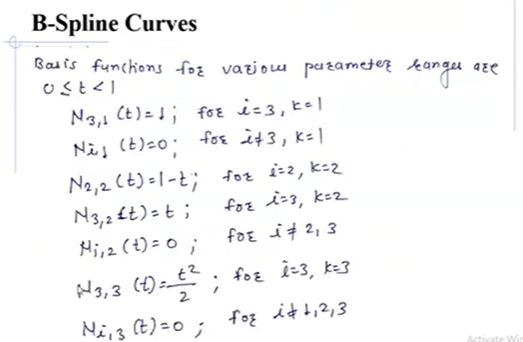 B-Spline Curves
Basis functions for various parameter ranges are
0 ≤ t < 1
N3,1 (t) = 1; for i=3, k=1
Ni,1 (t)=0; for i≠3, k=1
N2,2 (t) = 1-t; for i=2, k=2
N3,2 (t) = t; for i=3, k=2
Ni,2 (t) = 0; for i ≠ 2, 3
N3,3 (t) = t²/2; for i=3, k=3
Ni,3 (t) = 0; for i≠1,2,3
Activate Wir